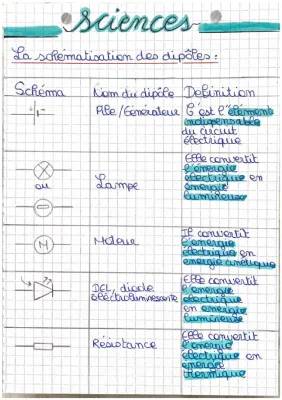 Sciences
La schématisation des dipôles :
Schéma Nom du dipôle Definition
Pile/Générateur C'est l'élément
indispensable
du circuit
électrique
ou Lampe Elle convertit
l'énergie
électrique en
énergie
lumineuse
M Moteur Il convertit
l'énergie
électrique en
energie cinétique
DEL, diode
électroluminescente Elle convertit
l'énergie
électrique
en energie
lumineuse
Résistance Elle convertit
l'energie
électrique en
energie
thermique